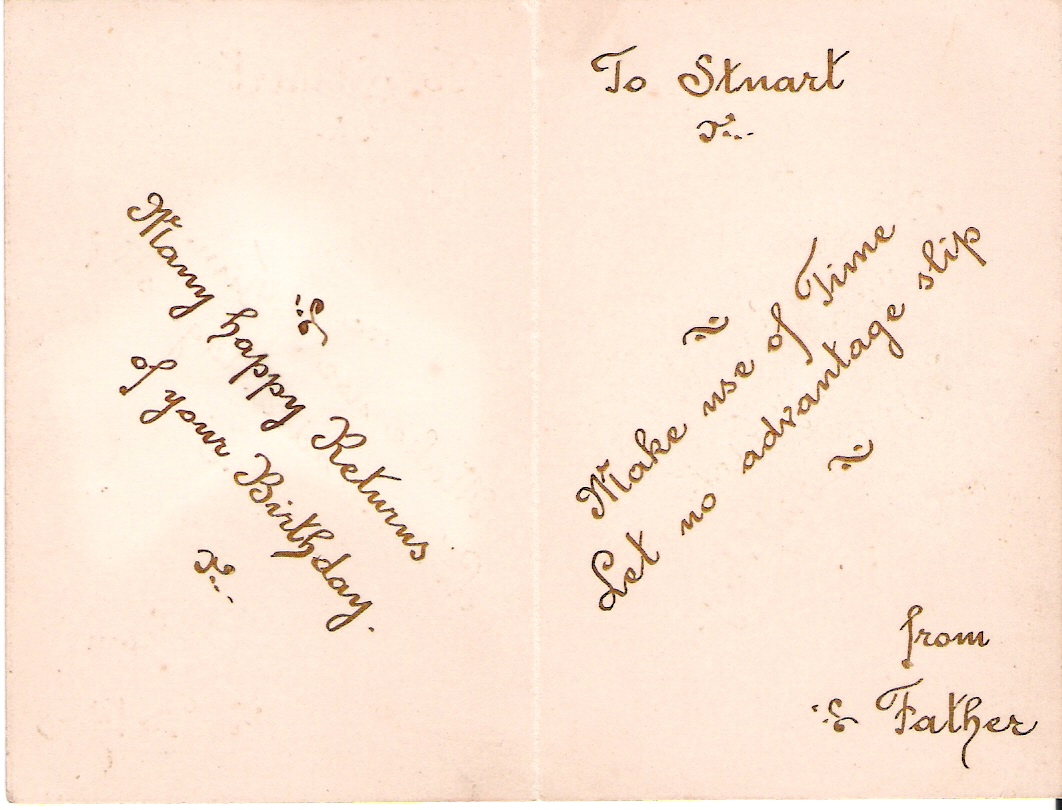 Many happy Returns
of your Birthday.
To Stuart
Make use of Time
Let no advantage slip
from
Father